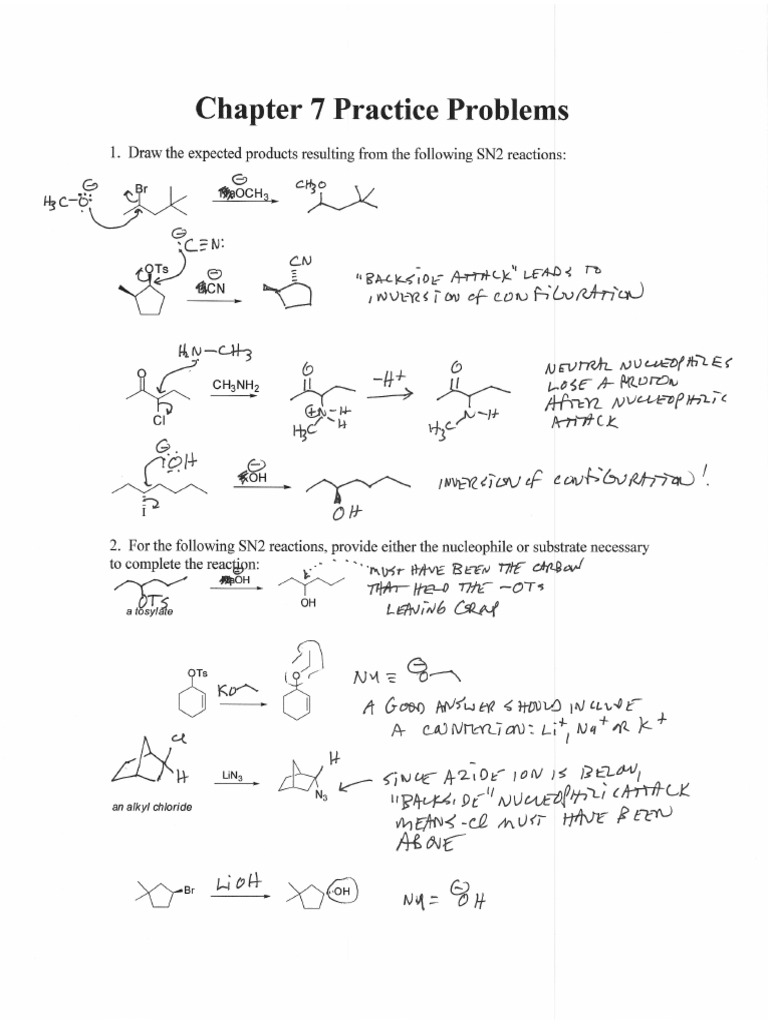 Chapter 7 Practice Problems
1. Draw the expected products resulting from the following SN2 reactions:
H3C-O:
Br
OCH3
CH3O
:C≡N:
OTs
CN
CN
"BACKSIDE ATTACK" LEADS TO
INVERSION OF CONFIGURATION
H2N-CH3
O
Cl
CH3NH2
O
N-H
H
H3C
-H+
O
N-H
H3C
NEUTRAL NUCLEOPHILES
LOSE A PROTON
AFTER NUCLEOPHILIC
ATTACK
:OH
I
OH
OH
INVERSION OF CONFIGURATION!
2. For the following SN2 reactions, provide either the nucleophile or substrate necessary
to complete the reaction:
MUST HAVE BEEN THE CARBON
THAT HELD THE -OTs
LEAVING GROUP
OTS
a tosylate
OH
OH
OTs
KO
O
Nu ≡ O
A GOOD ANSWER SHOULD INCLUDE
A COUNTERION: Li+, Na+ OR K+
Cl
H
an alkyl chloride
LiN3
H
N3
SINCE AZIDE ION IS BELOW,
"BACKSIDE" NUCLEOPHILIC ATTACK
MEANS -Cl MUST HAVE BEEN
ABOVE
Br
LiOH
OH
Nu = OH